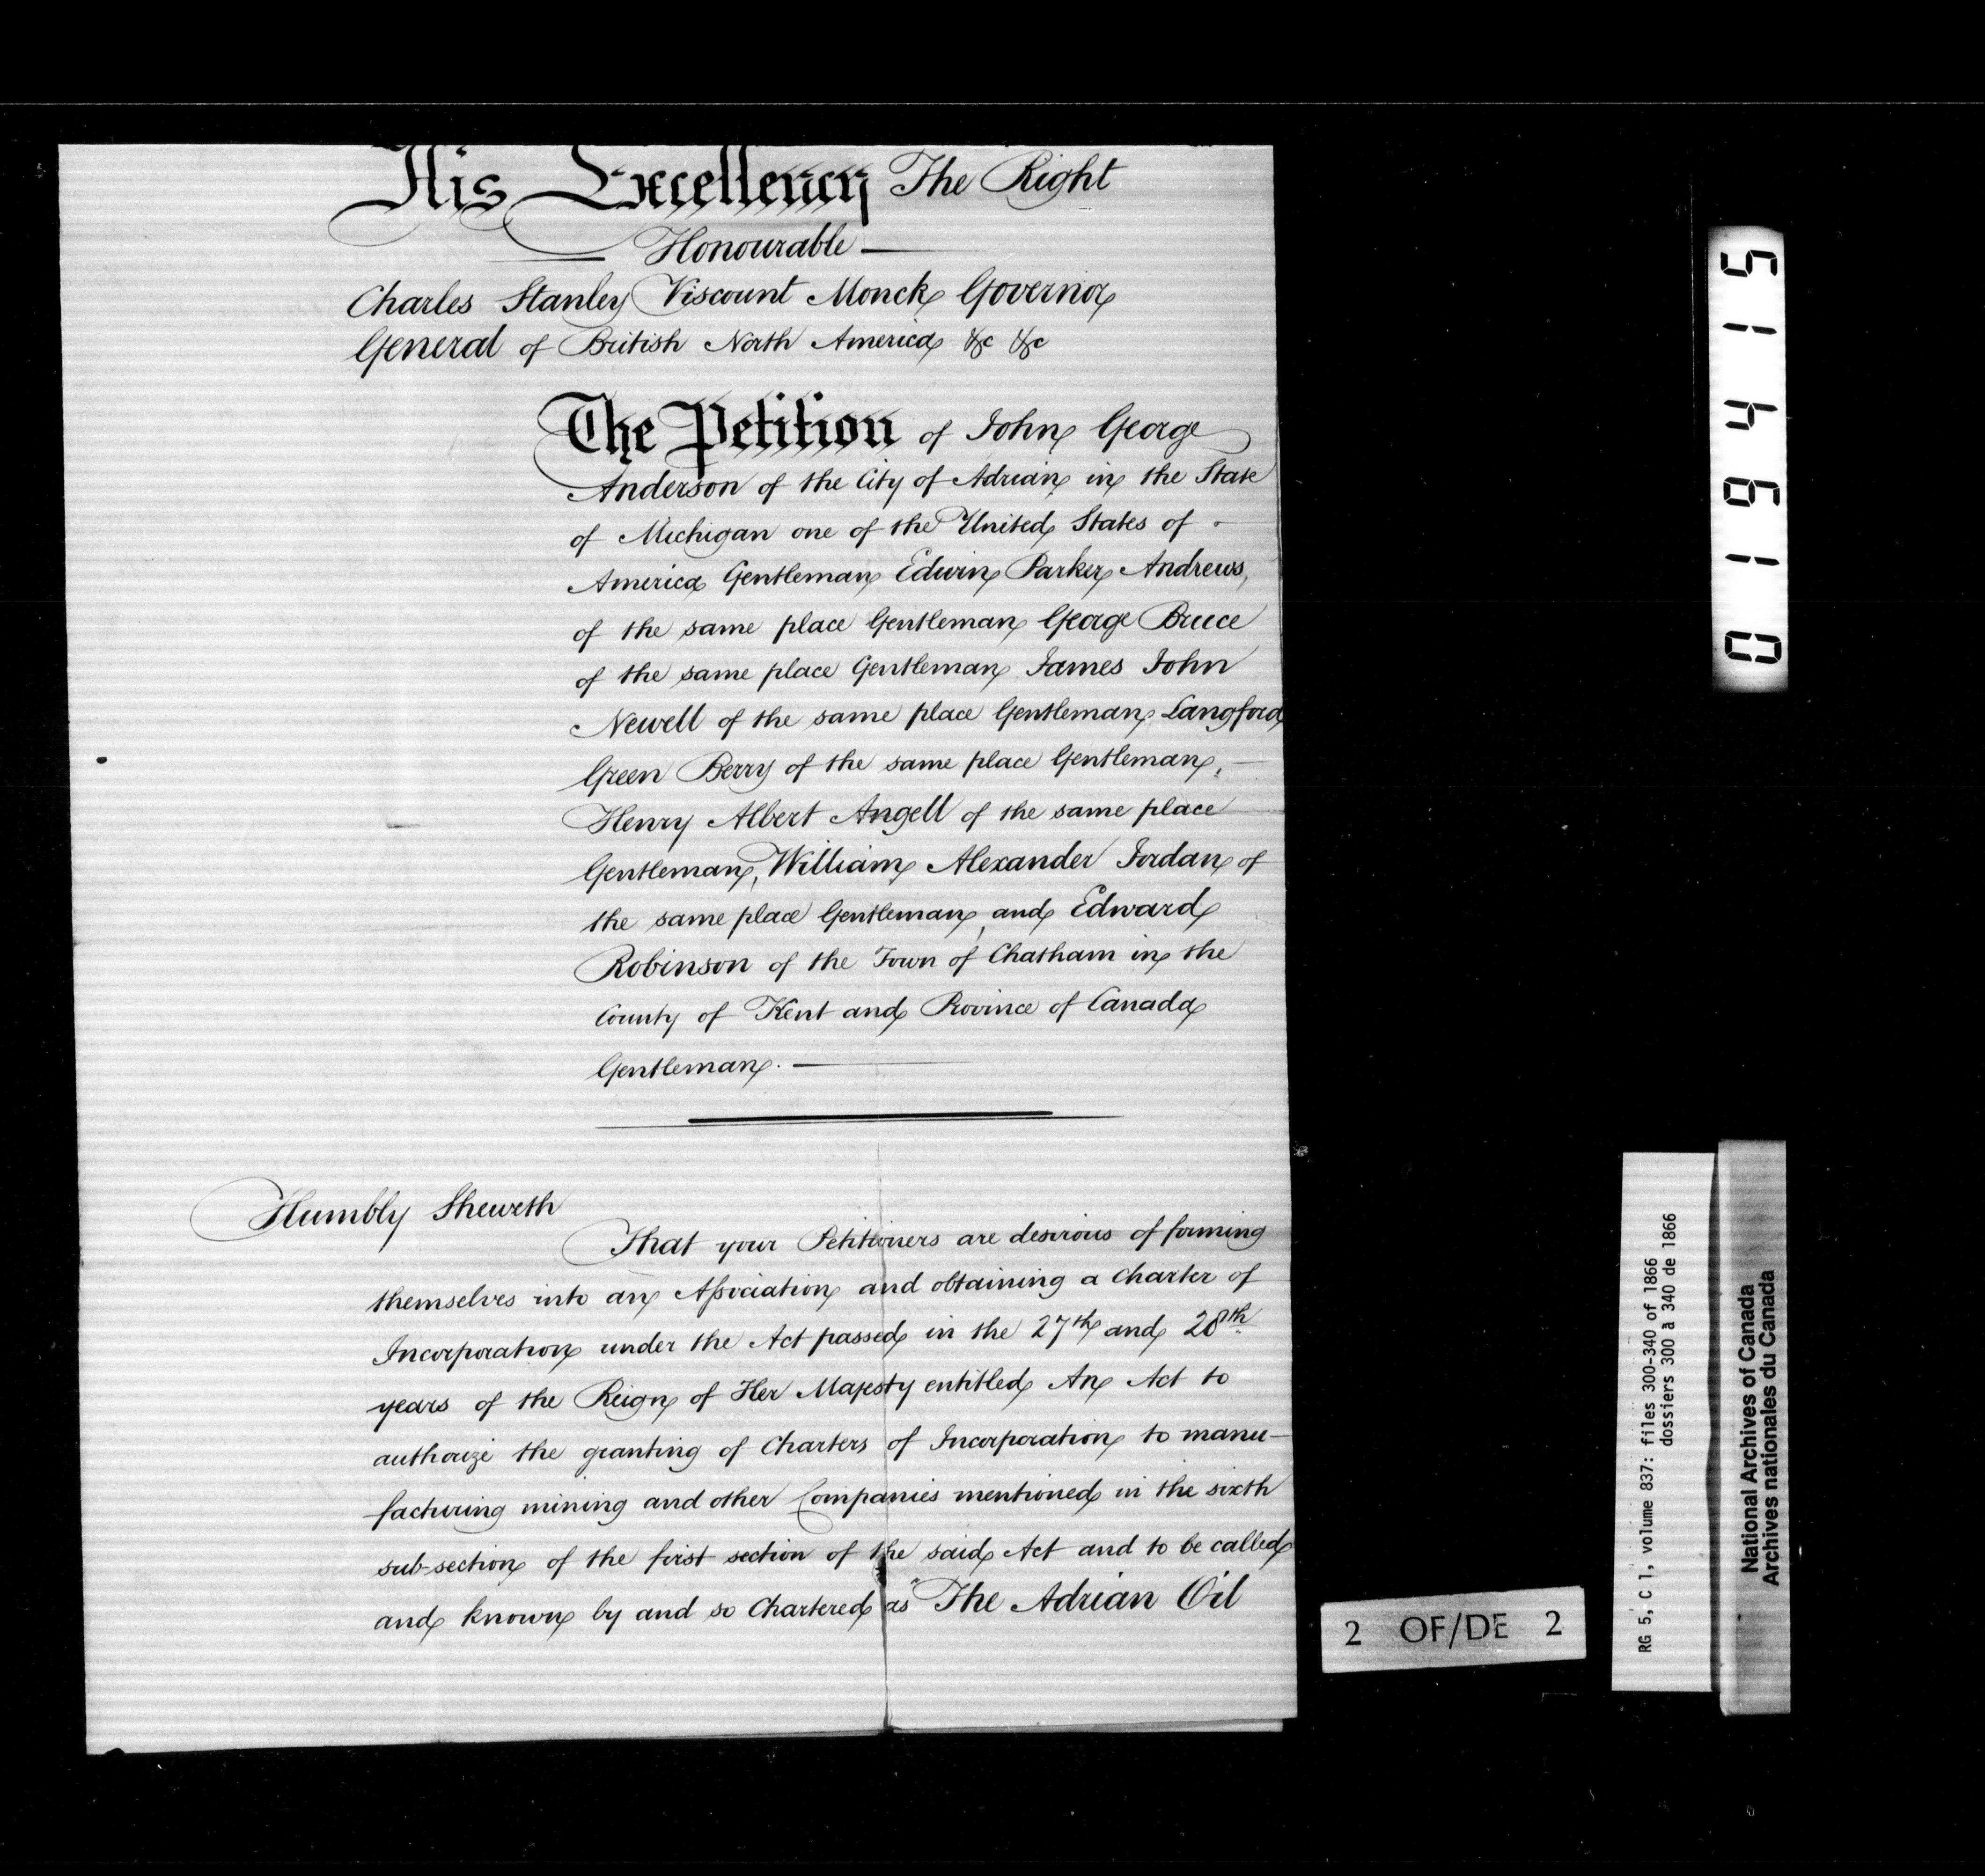 His Excellency The Right
Honourable
Charles Stanley Viscount Monck Governor
General of British North America &c &c
The Petition of John George
Anderson of the City of Adrian in the State
of Michigan one of the United States of
America Gentleman Edwin Parker Andrews,
of the same place Gentleman George Bruce
of the same place Gentleman James John
Newell of the same place Gentleman, Langford
Green Berry of the same place Gentleman,
Henry Albert Angell of the same place
Gentleman, William Alexander Jordan of
the same place Gentleman, and Edward
Robinson of the Town of Chatham in the
County of Kent and Province of Canada
Gentleman.
Humbly Sheweth
That your Petitioners are desirous of forming
themselves into an Association and obtaining a Charter of
Incorporation under the Act passed in the 27th and 28th
years of the Reign of Her Majesty entitled An Act to
authorize the granting of Charters of Incorporation to manu-
facturing mining and other Companies mentioned in the sixth
sub-section of the first section of the said Act and to be called
and known by and so Chartered as "The Adrian Oil
2 OF/DE 2
RG 5, C 1, volume 837: files 300-340 of 1866
dossiers 300 à 340 de 1866
National Archives of Canada
Archives nationales du Canada
0 1 6 4 1 5